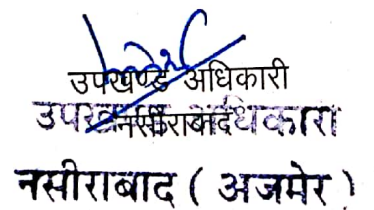 उपखण्ड अधिकारी
नसीराबाद
उपखण्ड अधिकारी
नसीराबाद ( अजमेर )